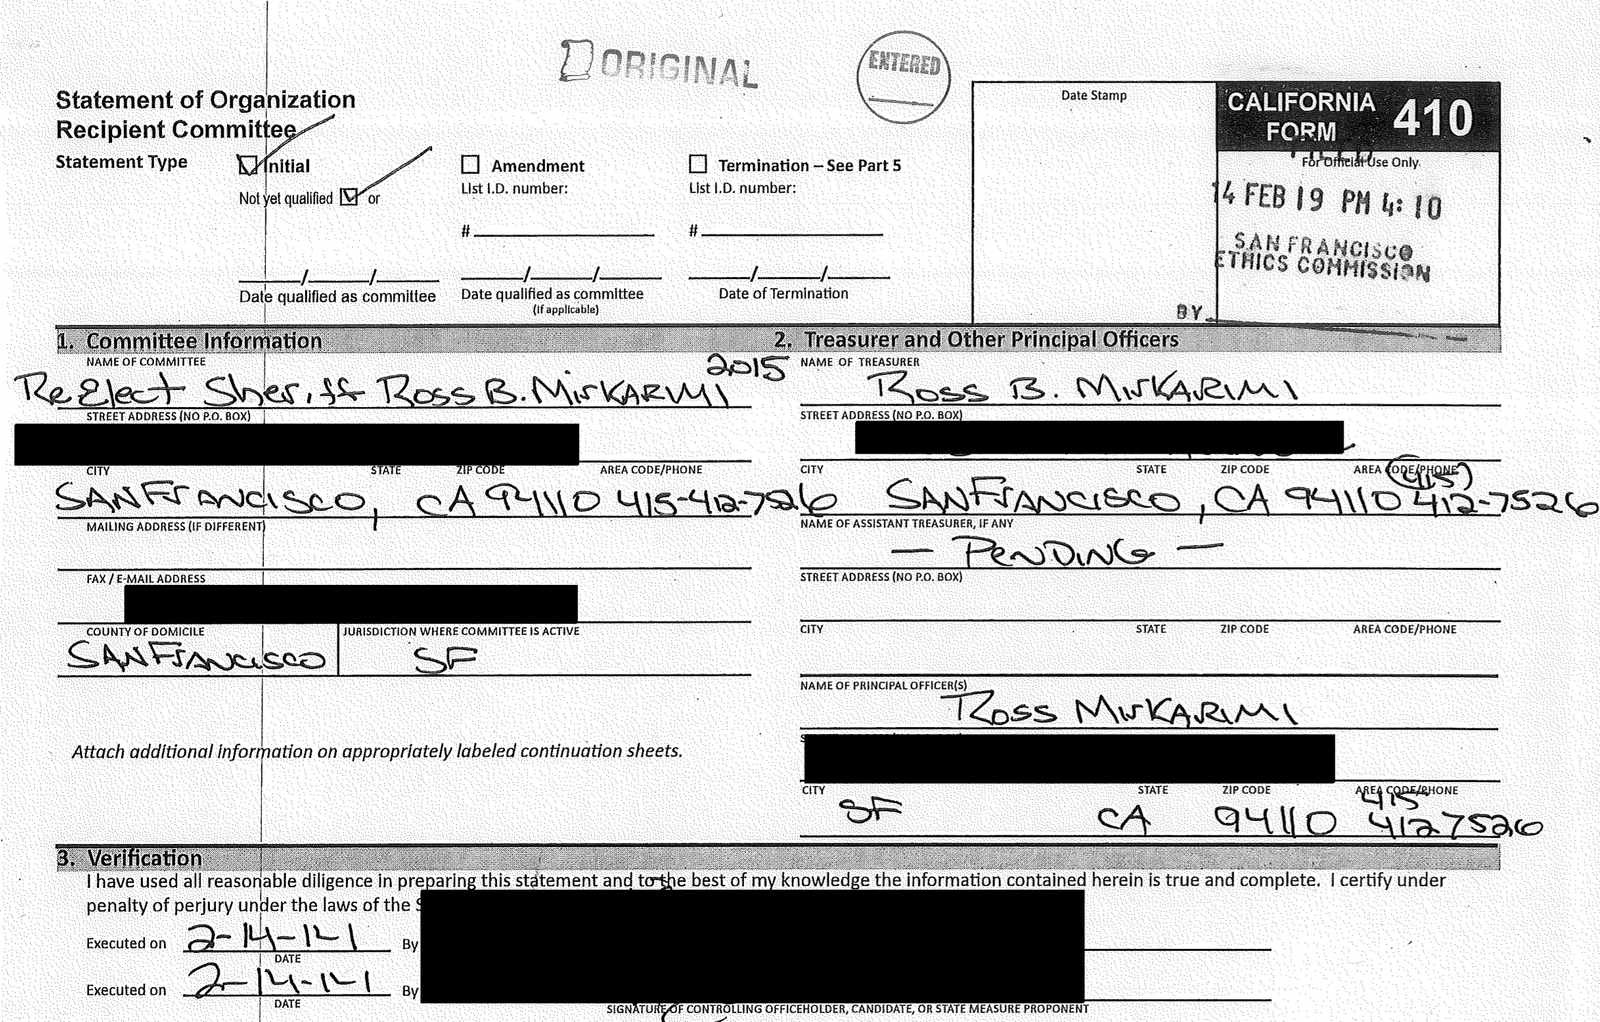 ORIGINAL
ENTERED
Statement of Organization
Recipient Committee
Statement Type
Initial
Not yet qualified or
Date qualified as committee
Amendment
List I.D. number:
#
Date qualified as committee
(If applicable)
Termination – See Part 5
List I.D. number:
#
Date of Termination
Date Stamp
CALIFORNIA
FORM 410
For Official Use Only
14 FEB 19 PM 4:10
SAN FRANCISCO
ETHICS COMMISSION
BY
1. Committee Information
NAME OF COMMITTEE
ReElect Sheriff Ross B. Mirkarimi 2015
STREET ADDRESS (NO P.O. BOX)
CITY STATE ZIP CODE AREA CODE/PHONE
San Francisco, CA 94110 415-412-7526
MAILING ADDRESS (IF DIFFERENT)
FAX / E-MAIL ADDRESS
COUNTY OF DOMICILE JURISDICTION WHERE COMMITTEE IS ACTIVE
San Francisco SF
Attach additional information on appropriately labeled continuation sheets.
2. Treasurer and Other Principal Officers
NAME OF TREASURER
Ross B. Mirkarimi
STREET ADDRESS (NO P.O. BOX)
CITY STATE ZIP CODE AREA CODE/PHONE
(415)
San Francisco, CA 94110 412-7526
NAME OF ASSISTANT TREASURER, IF ANY
— Pending —
STREET ADDRESS (NO P.O. BOX)
CITY STATE ZIP CODE AREA CODE/PHONE
NAME OF PRINCIPAL OFFICER(S)
Ross Mirkarimi
CITY STATE ZIP CODE AREA CODE/PHONE
415
SF CA 94110 4127526
3. Verification
I have used all reasonable diligence in preparing this statement and to the best of my knowledge the information contained herein is true and complete. I certify under
penalty of perjury under the laws of the S
Executed on 2-14-14 By
DATE
Executed on 2-14-14 By
DATE
SIGNATURE OF CONTROLLING OFFICEHOLDER, CANDIDATE, OR STATE MEASURE PROPONENT